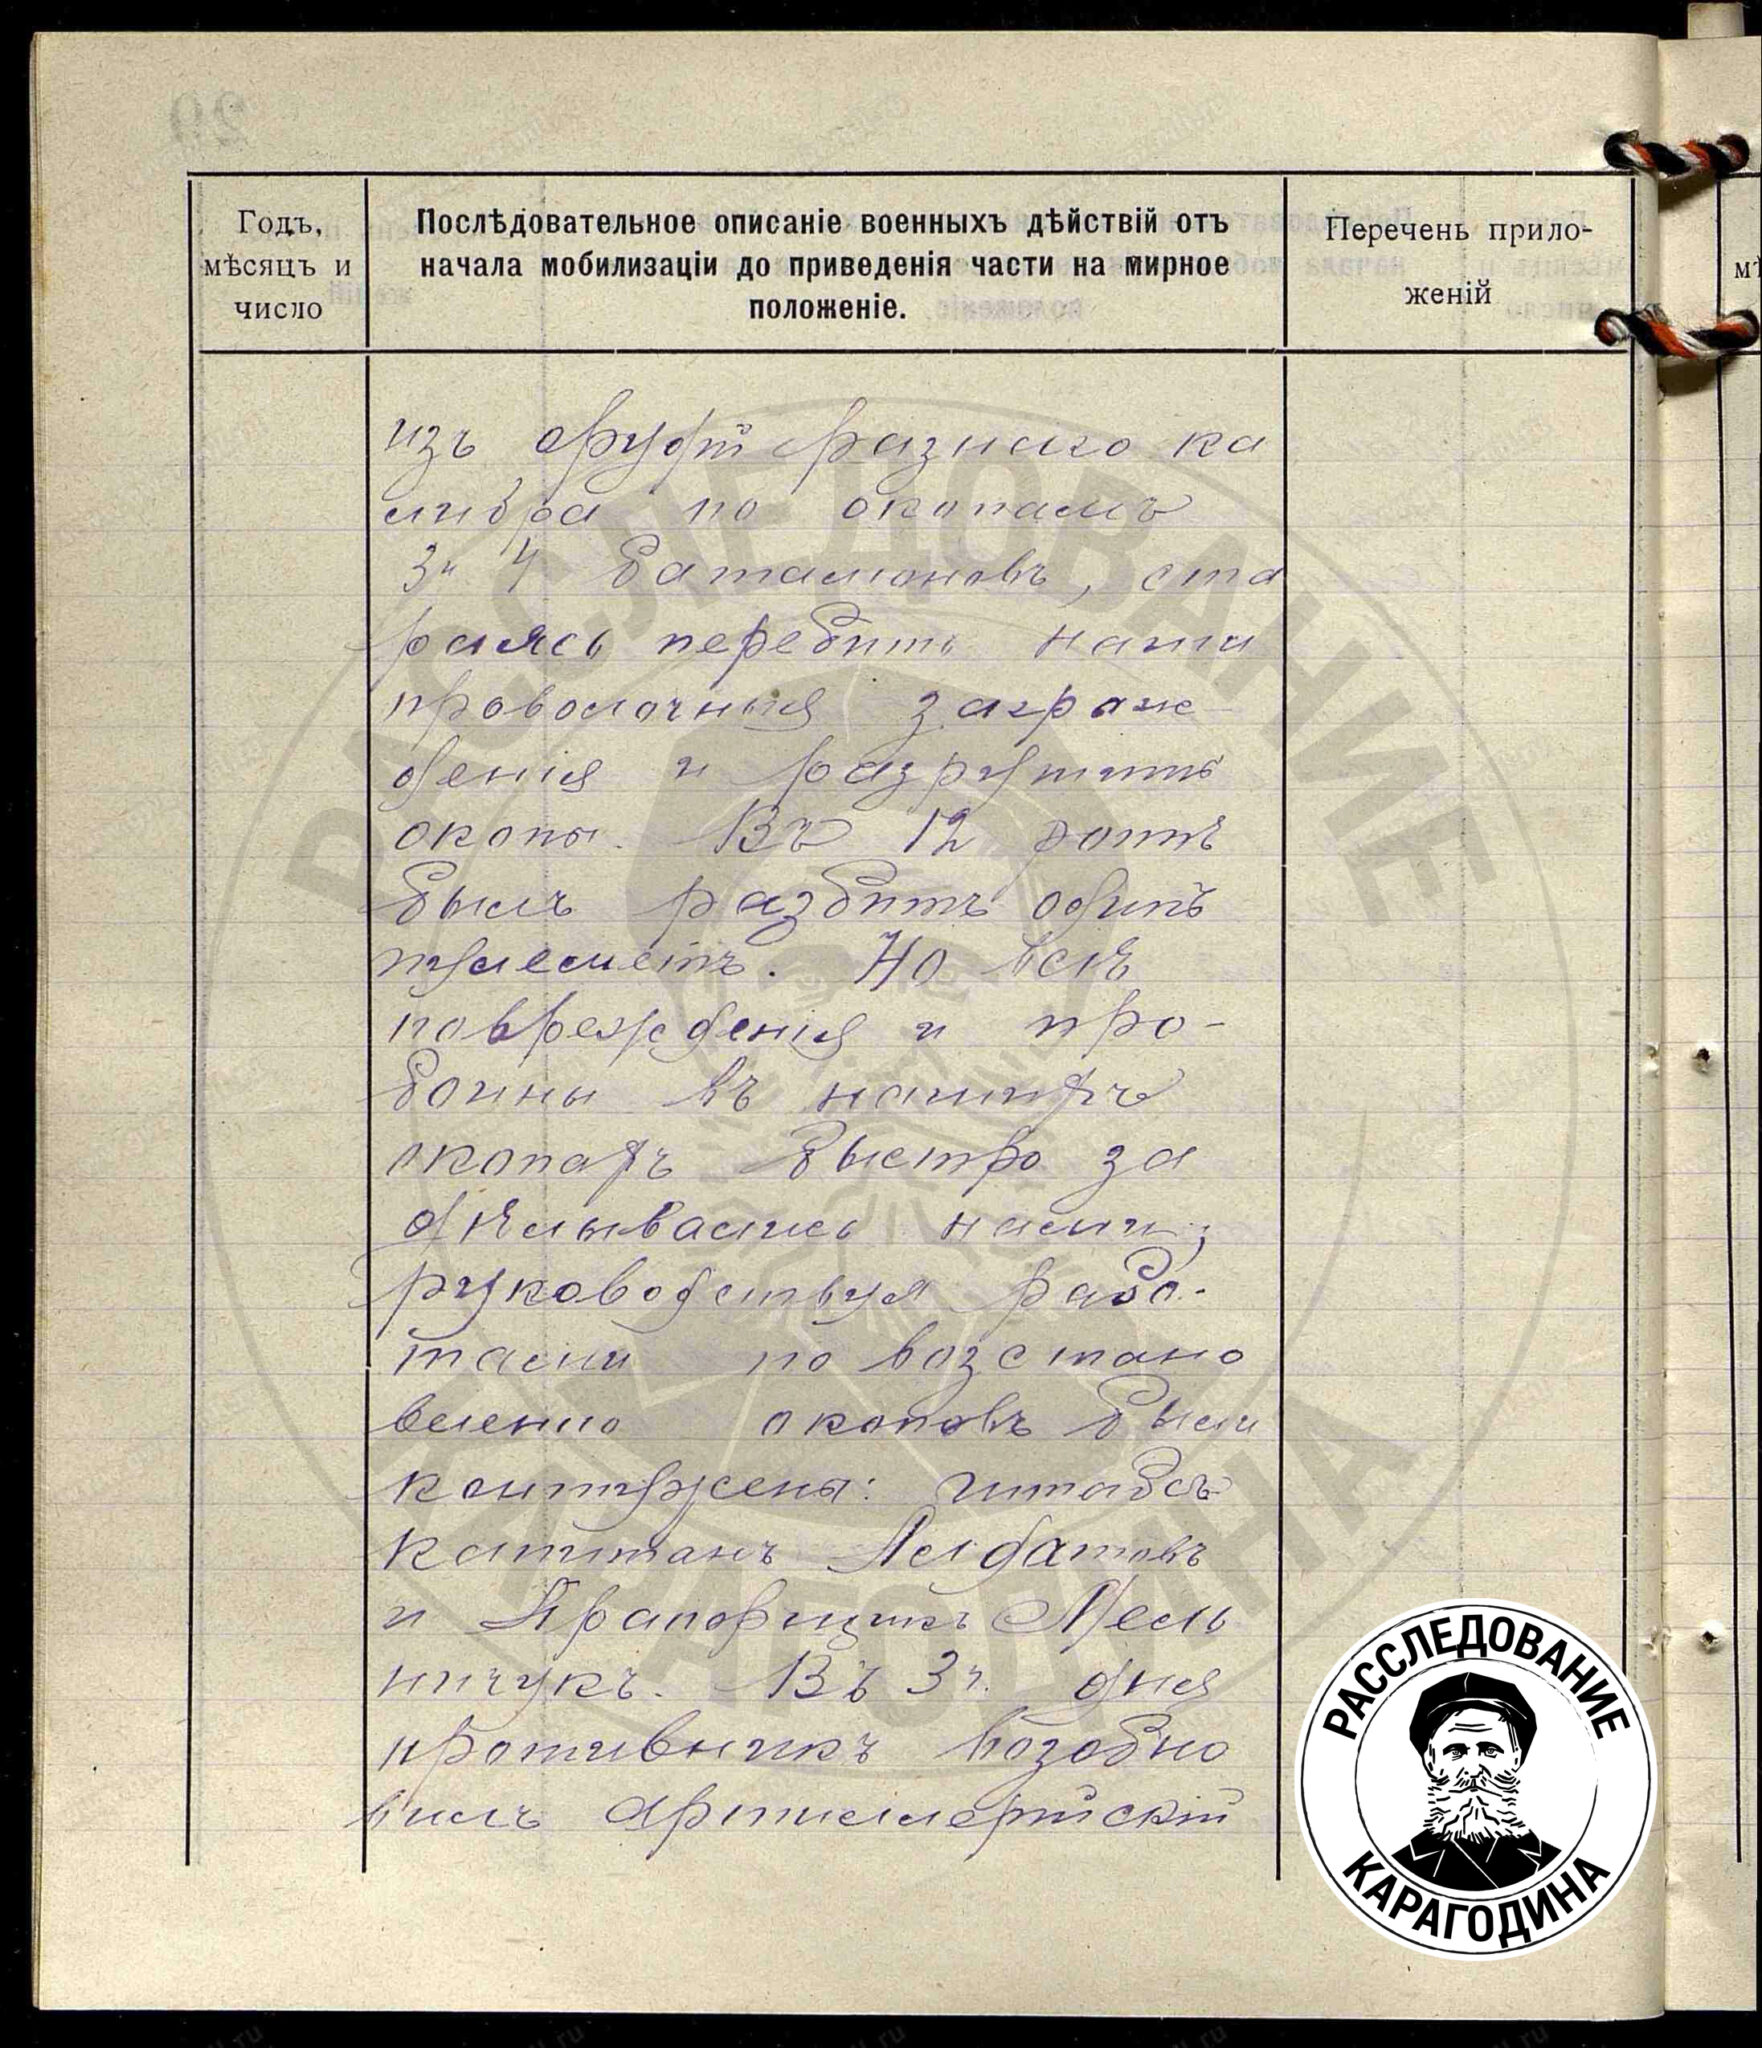 Годъ,
мѣсяцъ и
число
Послѣдовательное описаніе военныхъ дѣйствій отъ
начала мобилизаціи до приведенія части на мирное
положеніе.
Перечень прило-
женій
изъ орудій разнаго ка
либра по окопамъ
3 и 4 баталіоновъ, ста
раясь перебить наши
проволочныя заграж
денія и разрушить
окопы. Въ 12 ротѣ
былъ разбитъ одинъ
пулеметъ. Но всѣ
поврежденія и про-
боины въ нашихъ
окопахъ быстро за
дѣлывались нами;
руководствуя рабо-
тами по возстано
вленію окоповъ были
контужены: штабсъ
капитанъ
и Прапорщикъ Мель
ничукъ. Въ 3 ч. дня
противникъ возобно
вилъ артиллерійскій
РАССЛЕДОВАНИЕ
КАРАГОДИНА
РАССЛЕДОВАНИЕ
КАРАГОДИНА